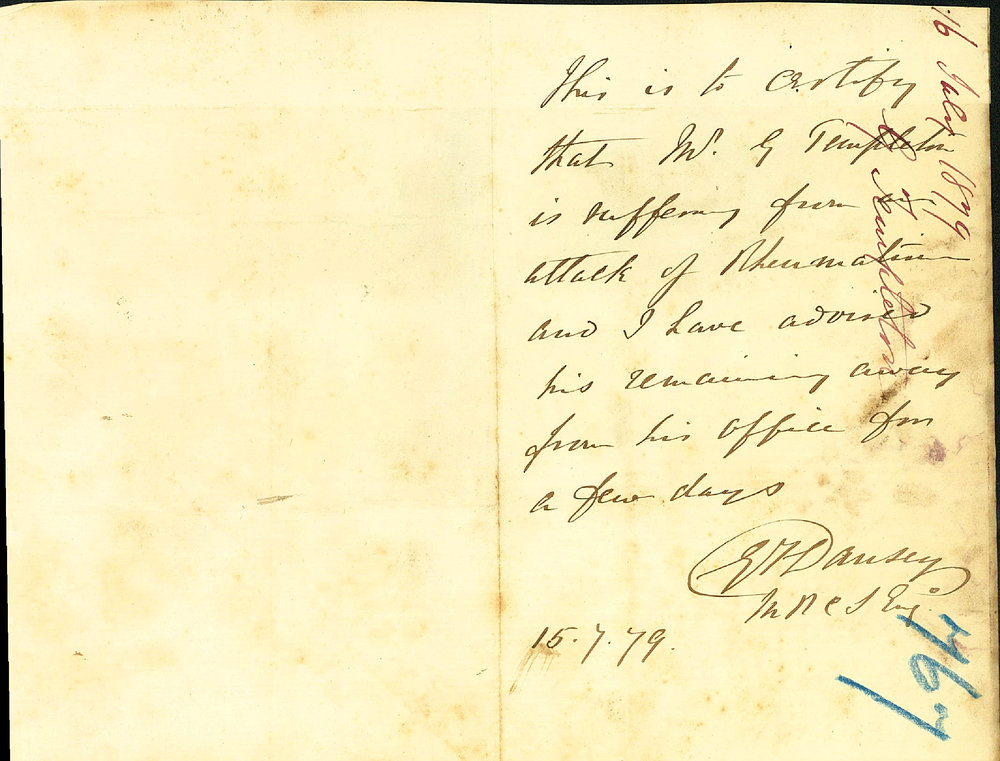 This is to certify
that Mr. G Templeton
is suffering from an
attack of Rheumatism
and I have advised
his remaining away
from his office for
a few days
Dansey
M R C S Eng.
15.7.79.
16 July 1879
G Templeton